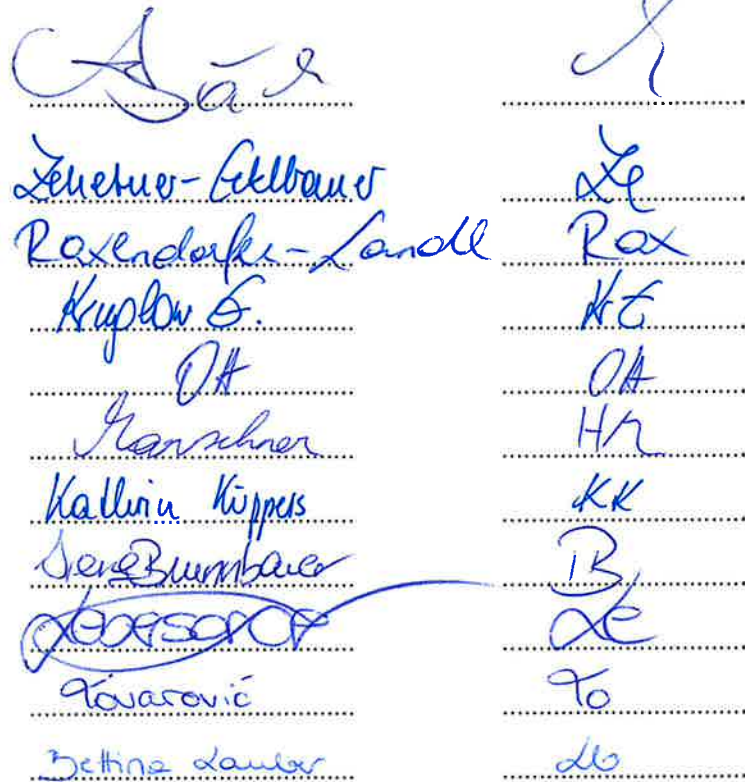 Zehetner-Edelbauer Ze
Raxendorfer-Landl Rax
Kruplow E. KE
OH OH
Marschner HM
Kathrin Küppers KK
Irene Brunnbauer IB
Le
Tovarović To
Bettina Lauber Lb